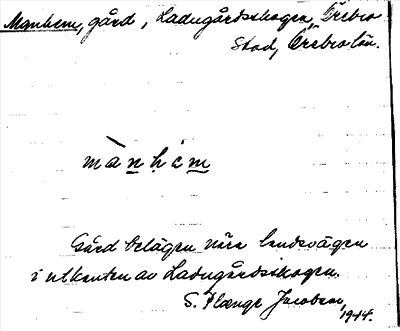 Manhem, gård, Ladugårdsskogen, Örebro
Stad, Örebro län.
mànhé̀m
Gård belägen nära landsvägen
i utkanten av Ladugårdsskogen.
S. Plænge Jacobson,
1944.